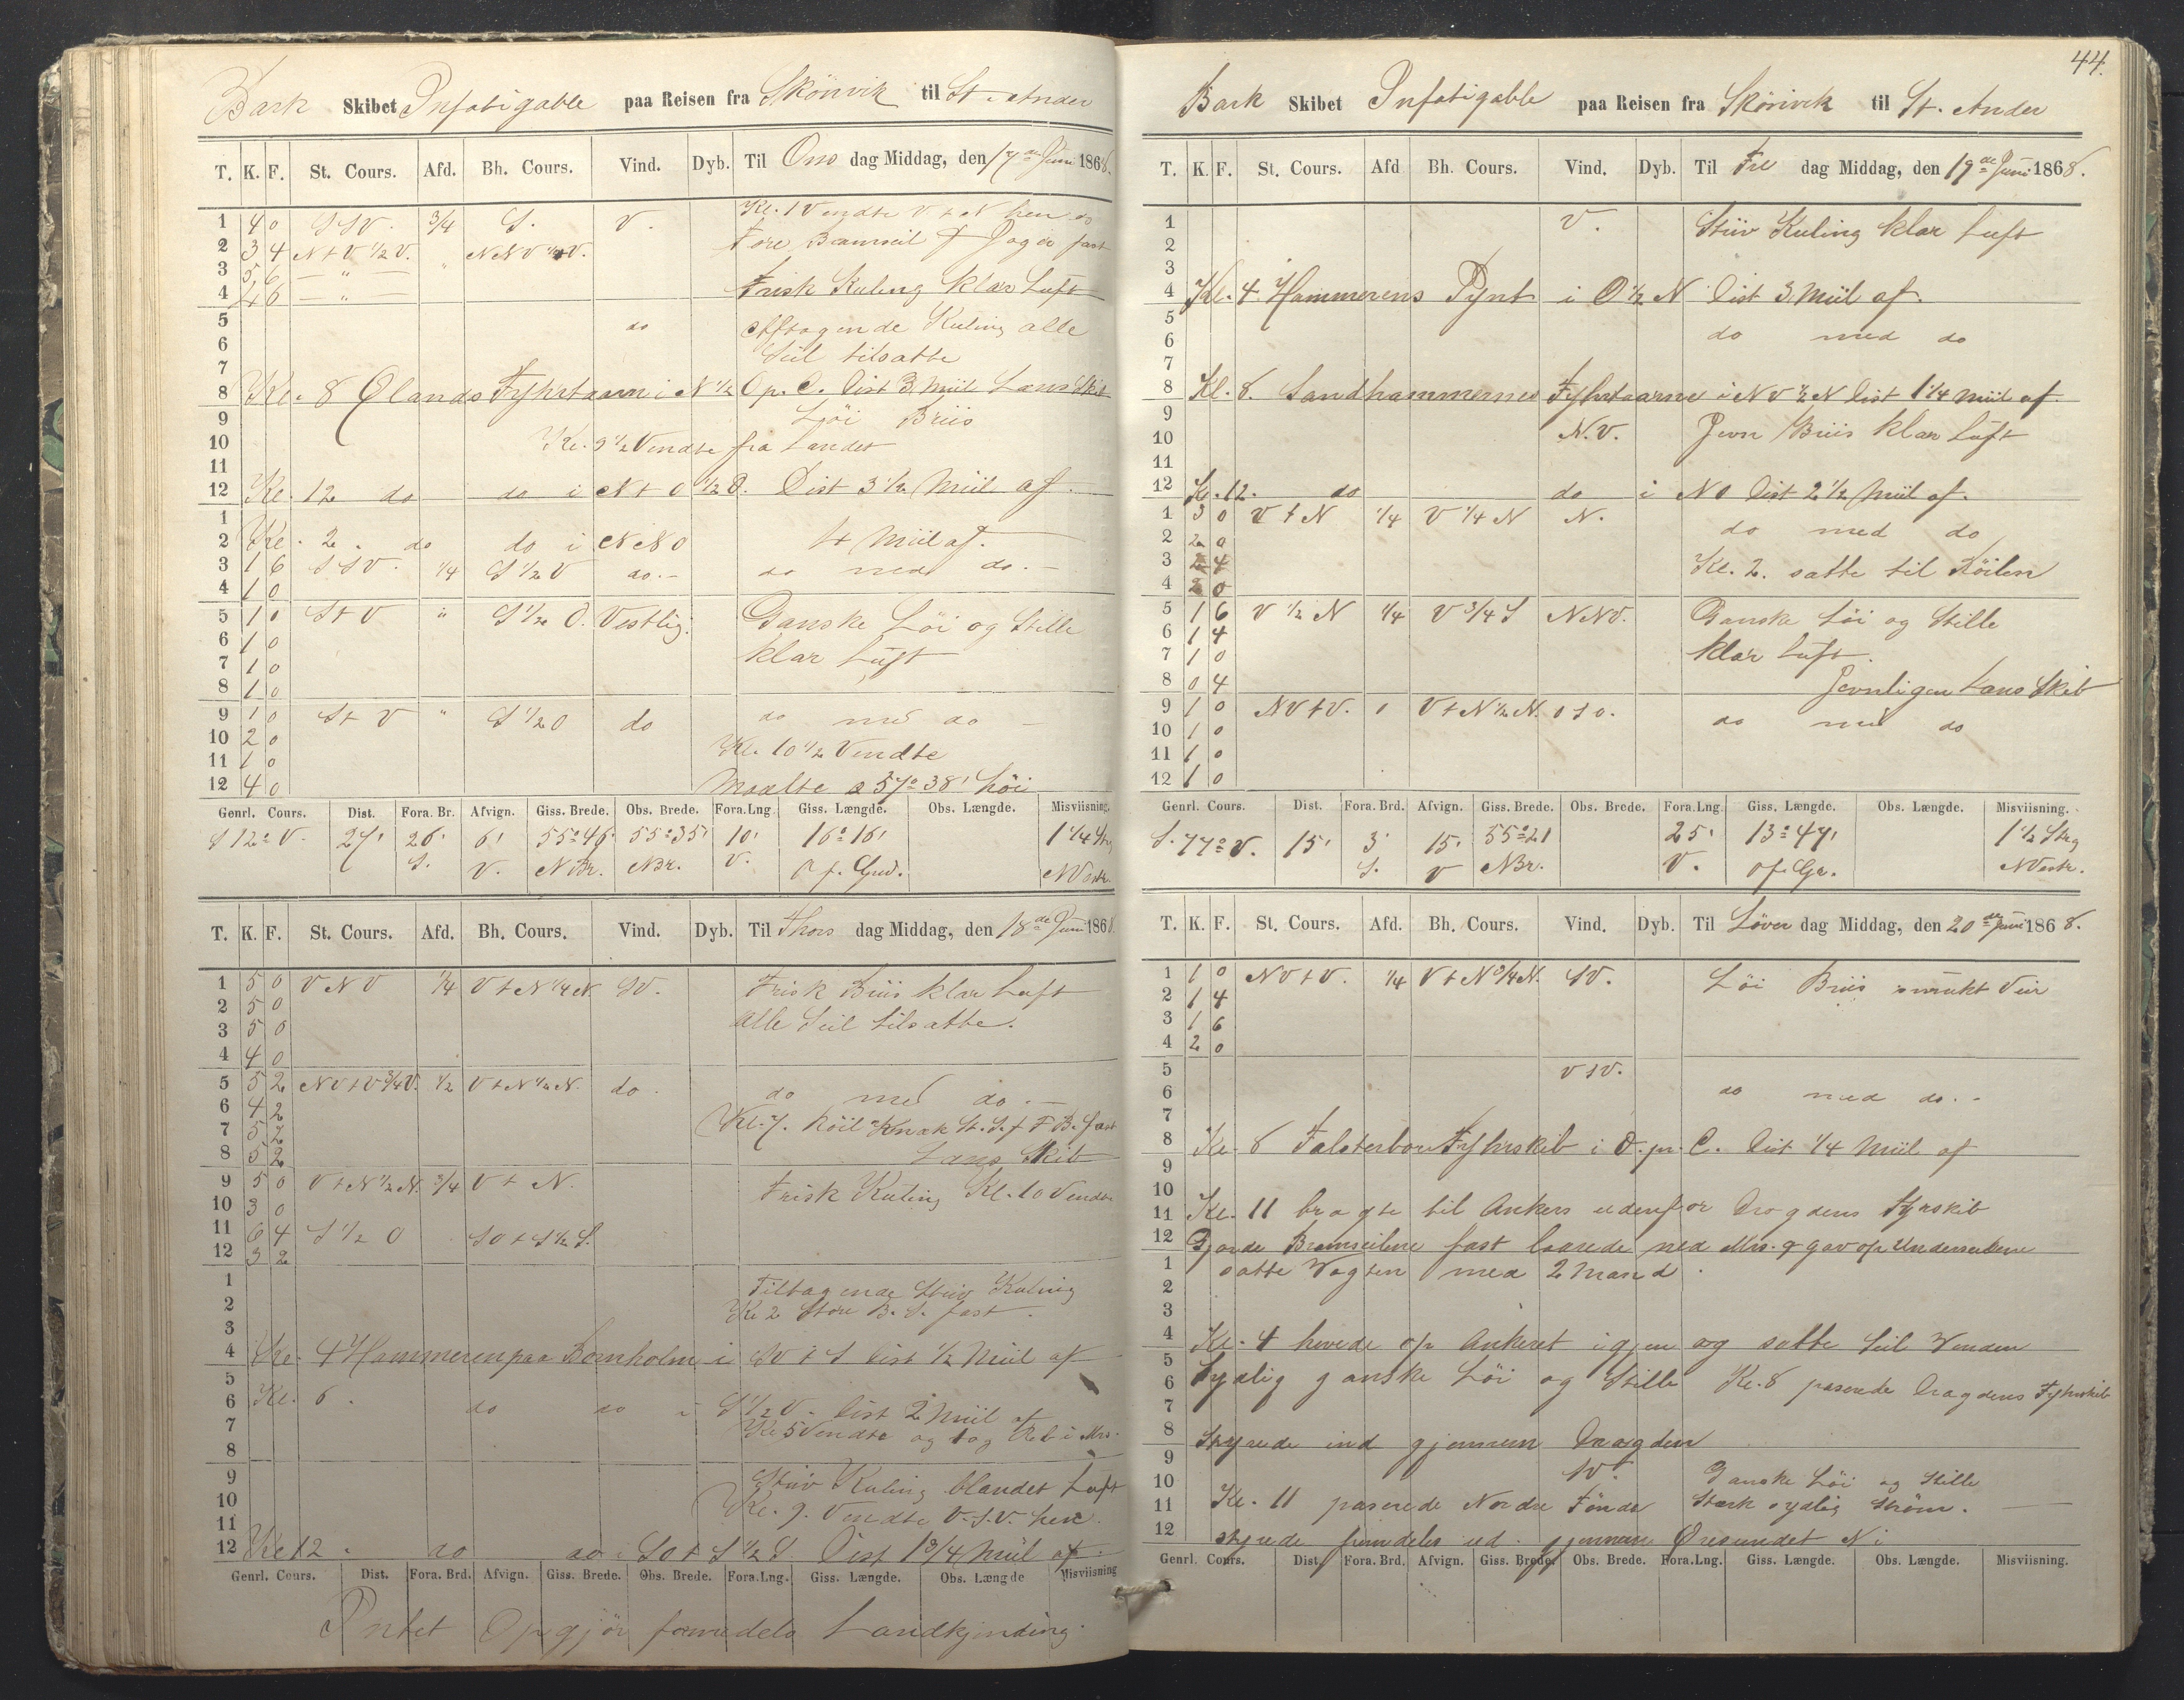 Bark Skibet Infatigable paa Reisen fra Skönvik til St. Ander
T. K. F. St. Cours. Afd. Bh. Cours. Vind. Dyb. Til Ons dag Middag, den 17de Juni 1868.
1 4 0 SSV. 3/4 S. V. Kl. 1 Vendte V t N hen do
2 3 4 N t V 1/2 V. " NNV 1/4 V. Fore Bramseil & Jager fast
3 5 6 — " —
4 4 6 — " — Frisk Kuling klar Luft
5 do Aftagende Kuling alle
6 Seil tilsatte
7
8 Kl. 8 Ølands Fyhrtaarn i N 1/2 O p. C. Dist 3 Miil Læns Skib
9 Löi Briis
10 Kl. 9 1/2 Vendte fra Landet
11
12 Kl. 12 do do i N t O 1/2 O. Dist 3 1/2 Miil af.
1
2 Kl. 2. do do i NNO 4 Miil af.
3 1 6 SSV. 1/4 S 1/2 V do.- do med do.-
4 1 0
5 1 0 S t V " S 1/2 O. Vestlig. Ganske Löi og Stille
6 1 0
7 1 0 klar Luft
8 1 0
9 1 0 S t V " S 1/2 O do do med do -
10 2 0 Kl. 10 1/2 Vendte
11 1 0
12 4 0 Maalte a 57° 38' höi
Genrl. Cours. Dist. Fora. Br. Afvign. Giss. Brede. Obs. Brede. Fora.Lng. Giss. Længde. Obs. Længde. Misviisning.
S 12° V. 27' 26' 6' 55° 46' 55° 35' 10' 16° 16' 1 1/4 Str.
S. V. NBr. NBr. V. O f. Grw. NVestr.
T. K. F. St. Cours. Afd. Bh. Cours. Vind. Dyb. Til Thors dag Middag, den 18de Juni 1868.
1 5 0 VNV 1/4 V t N 1/4 N. SV. Frisk Briis klar Luft
2 5 0
3 5 0 alle Seil tilsatte.
4 4 0
5 5 2 NV t V 3/4 V. 1/2 V t N 1/2 N. do. do med do.-
6 4 2
7 5 2 Kl. 7. Röil Knæk St. S. & F B. fast
8 5 2 Læns Skib
9 5 0 V t N 1/2 N. 3/4 V t N. Frisk Kuling Kl. 10 Vendte
10 3 0
11 6 4 S 1/2 O SO t S 1/2 S.
12 3 2
1 Tiltagende Stiiv Kuling
2 Kl 2 Store B. S. fast.
3
4 Kl. 4 Hammeren paa Bornholm i SV t S Dist 1/2 Miil af
5
6 Kl. 6. do do i S 1/2 V. Dist 2 Miil af
7 Kl 5 Vendte og tog Reb i Mrs.
8
9 Stiiv Kuling blandet Luft
10 Kl. 9. Vendte V.S.V. hen.
11
12 Kl 12. do do SO t S 1/2 S. Dist 1 3/4 Miil af.
Genrl. Cours. Dist. Fora. Brd. Afvign. Giss. Brede. Obs. Brede. Fora.Lng. Giss. Længde. Obs. Længde Misviisning
Intet Opgjör formedels Landkjending.
44.
Bark Skibet Infatigable paa Reisen fra Skönvik til St. Ander
T. K. F. St. Cours. Afd Bh. Cours. Vind. Dyb. Til Fre dag Middag, den 19de Juni 1868.
1 V. Stiiv Kuling klar Luft
2
3
4 Kl. 4. Hammerens Pynt i O 1/2 N Dist 3 Miil af.
5
6 do med do
7
8 Kl. 8. Sandhammernes Fyhrtaarne i NV 1/2 N Dist 1 1/4 Miil af.
9
10 N.V. Jevn Briis klar Luft
11
12 Kl. 12. do do i NO Dist 2 1/2 Miil af.
1 3 0 V t N 1/4 V 1/4 N N. do med do
2 2 0
3 2 4 Kl. 2. satte til Röilen
4 2 0
5 1 6 V 1/2 N 1/4 V 3/4 S NNV. Ganske Löi og Stille
6 1 4
7 1 0 klar Luft.
8 0 4 Jevnligen Læns Skib
9 1 0 NV t V. 0 V t N 1/2 N. OSO. do med do
10 1 0
11 1 0
12 1 0
Genrl. Cours. Dist. Fora. Brd. Afvign. Giss. Brede. Obs. Brede. Fora.Lng. Giss. Længde. Obs. Længde. Misviisning.
S. 77° V. 15' 3' 15' 55° 21 25' 13° 47' 1 1/2 Strg
S. V NBr. V. O f. Gr. NVestr.
T. K. F. St. Cours. Afd. Bh. Cours. Vind. Dyb. Til Löver dag Middag, den 20de Juni 1868.
1 1 0 NV t V. 1/4 V t N 3/4 N. SV. Löi Briis smukt Veir
2 1 4
3 1 6
4 2 0
5 VSV.
6 do med do.-
7
8 Kl. 8 Falsterboe Fyhrskib i O. pr. C. Dist 1/4 Miil af
9
10
11 Kl. 11 bragte til Ankers udenfor Drogdens Fyrskib
12 Gjorde Bramseilene fast laarede ned Mrs. & gav op Underseilene
1 satte Vagten med 2 Mand.
2
3
4 Kl. 4 hivede op Ankeret igjen og satte Seil Vinden
5
6 Sydlig ganske Löi og Stille Kl. 8 paserede Drogdens Fyhrskib
7
8 Styrede ind gjennem Drogden
9 SV.
10 Ganske Löi og Stille
11 Kl. 11 paserede Nordre Tönde Stærk sydlig Ström.
12 styrede fremdeles ud gjennem Öresundet N i
Genrl. Cours. Dist Fora. Brd. Afvign. Giss. Brede. Obs. Brede. Fora.Lng. Giss. Længde. Obs. Længde. Misviisning.